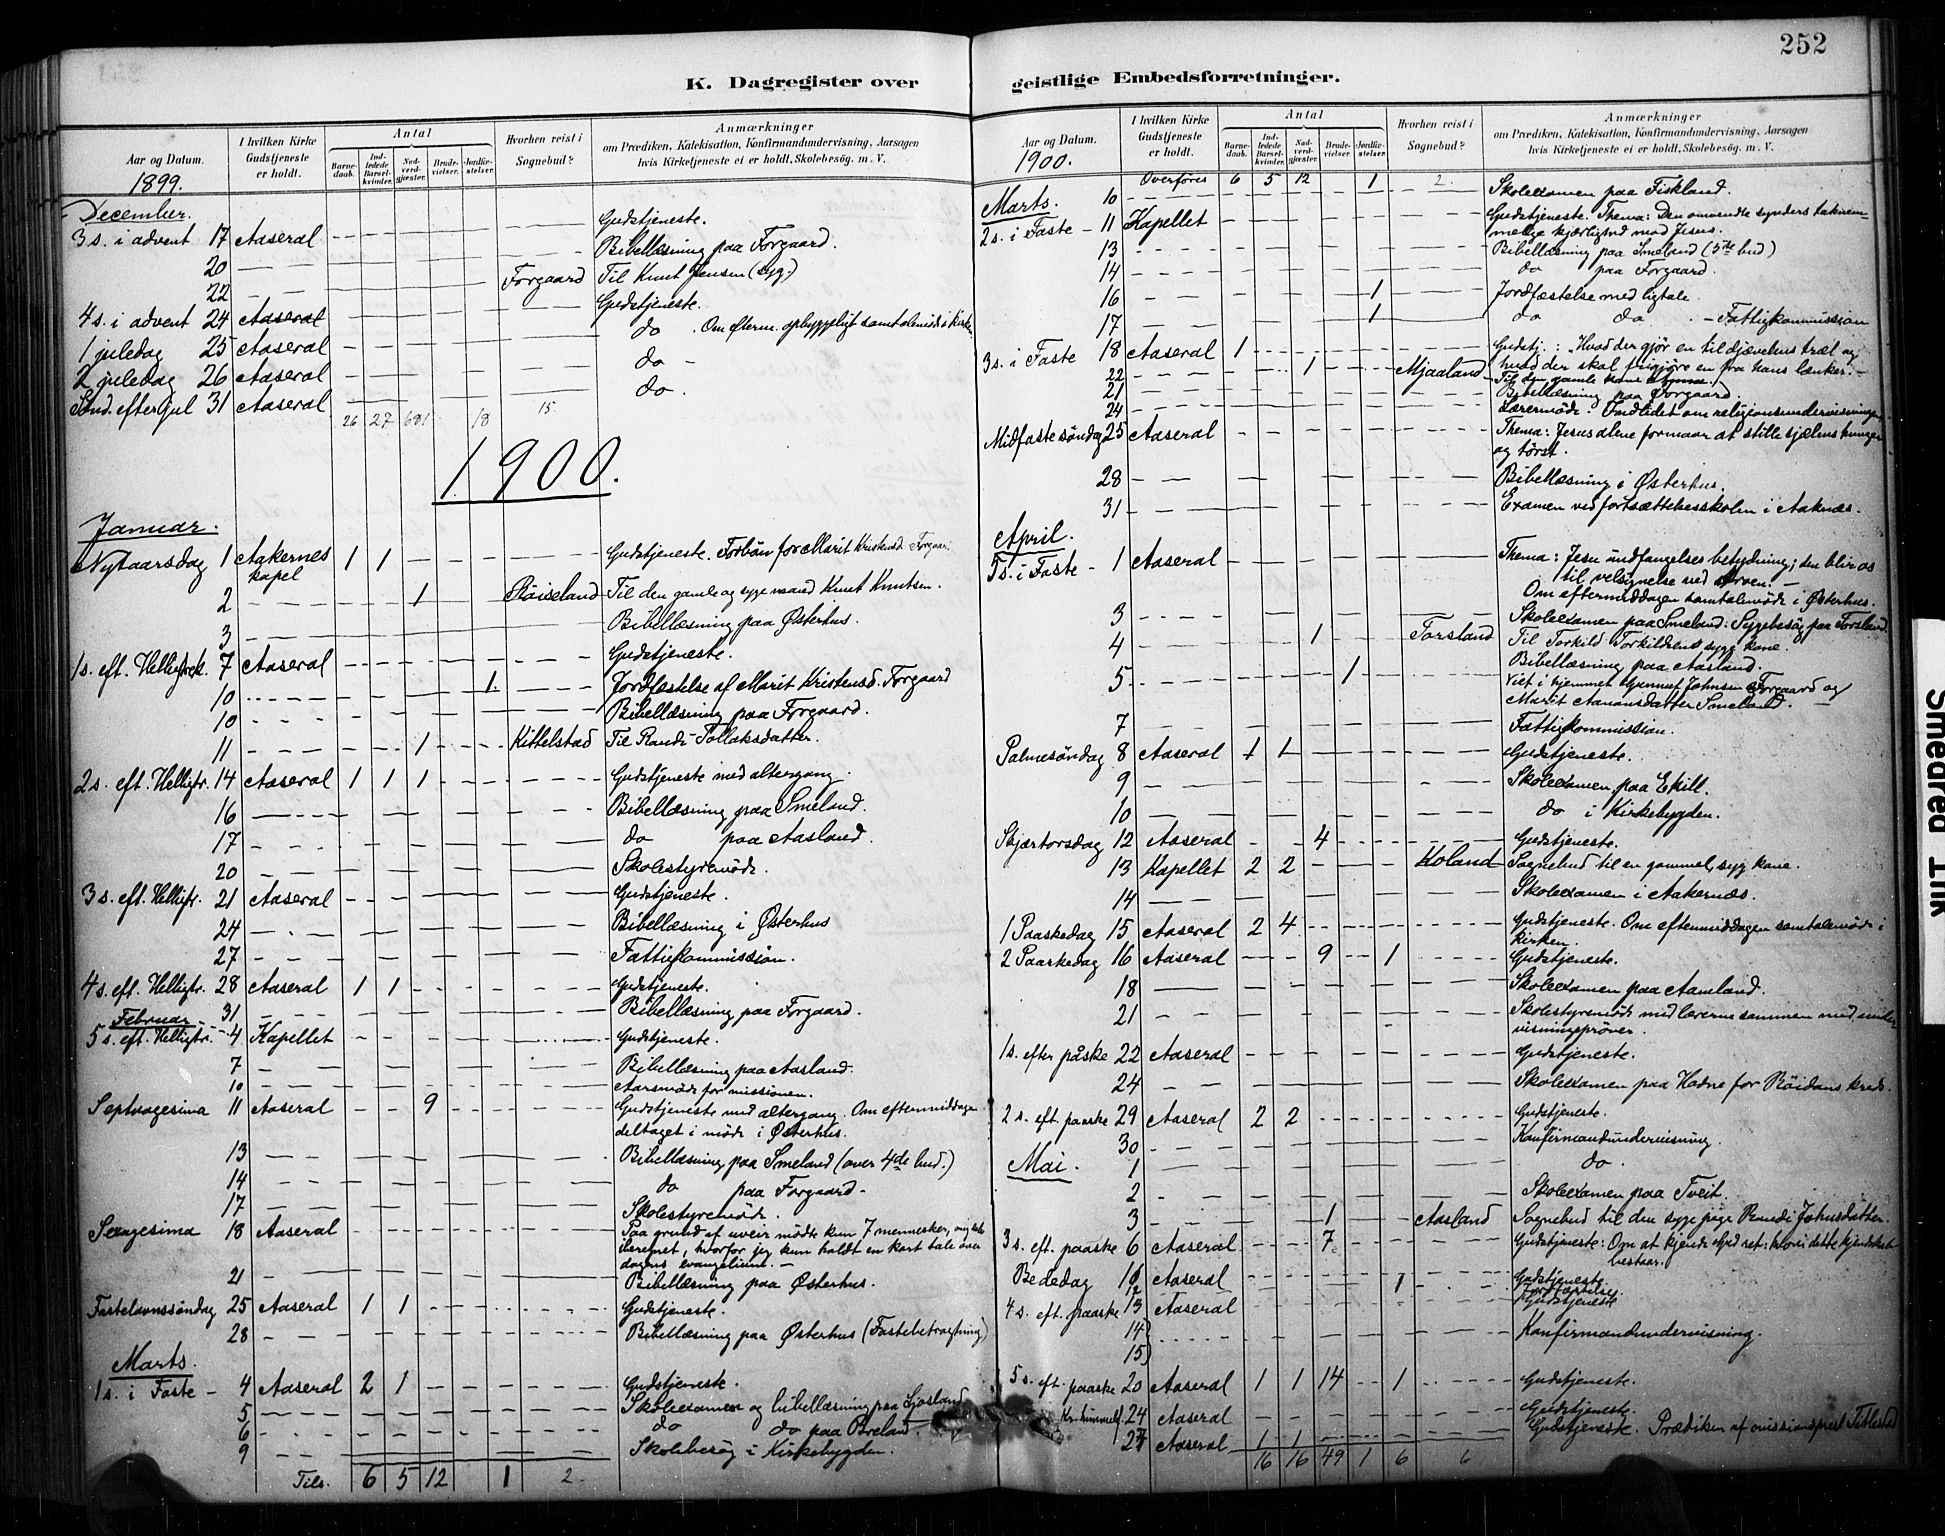 252
K. Dagregister over
Aar og Datum.
1899.
I hvilken Kirke Gudstjeneste er holdt.
Antal
Barnedaab.
Indledede Barselkvinder.
Nadverdgjæster.
Brudevielser.
Jordfæstelser.
Hvorhen reist i Sognebud?
Anmærkninger
om Prædiken, Katekisation, Konfirmandundervisning, Aarsagen
hvis Kirketjeneste ei er holdt, Skolebesøg. m. V.
December.
3 s. i advent 17 Aaseral Gudstjeneste.
20 Bibellæsning paa Forgaard.
22 Forgaard Til Knut Jensen (syg.)
4 s. i advent 24 Aaseral Gudstjeneste.
1 juledag 25 Aaseral do. Om efterm. opbyggeligt samtalemøde i kirken
2 juledag 26 Aaseral do
Sønd. efter jul 31 Aaseral do.
26 27 691 18 15.
1900.
Januar.
Nytaarsdag 1 Aakernes kapel 1 1 Gudstjeneste. Forbøn for Marit Kristensd. Forgaard
2 1 Røiseland Til den gamle og syge mand Knut Knutsen.
3 Bibellæsning paa Østerhus.
1 s. eft. Helligtrek. 7 Aaseral Gudstjeneste.
10 1. Jordfæstelse af Marit Kristensd. Forgaard
10 Bibellæsning paa Forgaard.
11 1 Kittelstad Til Randi Tollaksdatter.
2 s. eft. Helligtr. 14 Aaseral 1 1 1 Gudstjeneste med altergang.
16 Bibellæsning paa Smeland.
17 do paa Aasland.
20 Skolestyremøde.
3 s. eft. Helligtr. 21 Aaseral Gudstjeneste.
24 Bibellæsning i Østerhus
27 Fattigkommission.
4 s. eft. Helligtr. 28 Aaseral 1 1 Gudstjeneste.
31 Bibellæsning paa Forgaard.
Februar
5 s. eft. Helligtr. 4 Kapellet Gudstjeneste.
7 Bibellæsning paa Aasland.
10 Aarsmøde for missionen.
Septuagesima 11 Aaseral 9 Gudstjeneste med altergang. Om eftermiddagen
deltaget i møde i Østerhus.
13 Bibellæsning paa Smeland (over 4de bud.)
14 do paa Forgaard.
17 Skolestyremøde.
Sexagesima 18 Aaseral Paa grund af uveir mødte kun 7 mennesker,
hvorfor jeg kun holdt en kort tale over
dagens evangelium.
21 Bibellæsning paa Østerhus.
Fastelavnssøndag 25 Aaseral 1 1 Gudstjeneste.
28 Bibellæsning paa Østerhus (Fastebetragtning)
Marts.
1 s. i Faste 4 Aaseral 2 1 Gudstjeneste.
5 Skolexamen og bibellæsning paa Ljosland
6 do do paa Breland.
9 Skolebesøg i Kirkebygden.
Tils. 6 5 12 1 2.
geistlige Embedsforretninger.
Aar og Datum.
1900.
I hvilken Kirke Gudstjeneste er holdt.
Antal
Barnedaab.
Indledede Barselkvinder.
Nadverdgjæster.
Brudevielser.
Jordfæstelser.
Hvorhen reist i Sognebud?
Anmærkninger
om Prædiken, Katekisation, Konfirmandundervisning, Aarsagen
hvis Kirketjeneste ei er holdt, Skolebesøg. m. V.
Overføres 6 5 12 1 2.
Marts. 10 Skolexamen paa Fiskland.
2 s. i Faste 11 Kapellet Gudstjeneste. Thema: Den omvendte synders taknem-
melige kjærlighed mod Jesus.
13 Bibellæsning paa Smeland (5te bud)
14 do paa Forgaard.
16 1 Jordfæstelse med ligtale.
17 1 do do. Fattigkommission
3 s. i Faste 18 Aaseral 1 Gudstj.: "Hvad der gjør en til djævelens træl og
hvad der skal frigjøre en fra hans lænker.
22 1 Mjaaland Til den gamle kone
21 Bibellæsning paa Forgaard.
24 Lærermøde. Indledet om religionsundervisningen
Midfastesøndag 25 Aaseral Thema: Jesus alene formaar at stille sjælens hunger
og tørst.
28 Bibellæsning i Østerhus.
31 Examen ved fortsættelsesskolen i Aaknæs.
April.
5 s. i Faste 1 Aaseral Thema: Jesu undfangelses betydning; den blir os
til velsignelse ved troen.
Om eftermiddagen samtalemøde i Østerhus.
3 Skolexamen paa Smeland. Sygebesøg paa Forsland.
4 1 Forsland Til Torkild Torkildsens syge kone.
Bibellæsning paa Aasland.
5 1 Viet i hjemmet Gunnuf Johnsen Forgaard og
Marit Aanonsdatter Smeland.
7 Fattigkommission.
Palmesøndag 8 Aaseral 1 1 Gudstjeneste.
9 Skolexamen paa Ekill.
10 do i Kirkebygden.
Skjærtorsdag 12 Aaseral 4 Gudstjeneste.
13 Kapellet 2 2 Koland Sognebud til en gammel, syg kone.
14 Skolexamen i Aakernæs.
1 Paaskedag 15 Aaseral 2 4 Gudstjeneste. Om eftermiddagen samtalemøde i
kirken.
2 Paaskedag 16 Aaseral 9 1 Gudstjeneste.
18 Skolexamen paa Aamland.
21 Skolestyremøde med lærerne sammen med under-
visningsprøver.
1 s. efter påske 22 Aaseral Gudstjeneste.
24 Skolexamen paa Hadne for Røidans kreds.
2 s. eft. paaske 29 Aaseral 2 2 Gudstjeneste.
30 Konfirmandundervisning.
Mai. 1 do.
2 Skolexamen paa Tveit.
3 1 Aasland Sognebud til den syge pige Randi Johnsdatter.
3 s. eft. paaske 6 Aaseral 7 Gudstjeneste: Om at kjende Gud ret: hvori dette kjendskab
bestaar.
Bededag 11 Aaseral Gudstjeneste.
12 1 Jordfæstelse.
4 s. eft. paaske 13 Aaseral Gudstjeneste
14)
15) Konfirmandundervisning.
5 s. eft. paaske 20 Aaseral 1 1 14 1 Gudstjeneste.
Kr. himmelf. 24 Aaseral Gudstjeneste.
27 Aaseral 1 1 Gudstjeneste. Prædiken af missionsprest Titlestad
16 16 49 1 6 6
Smeared Ink